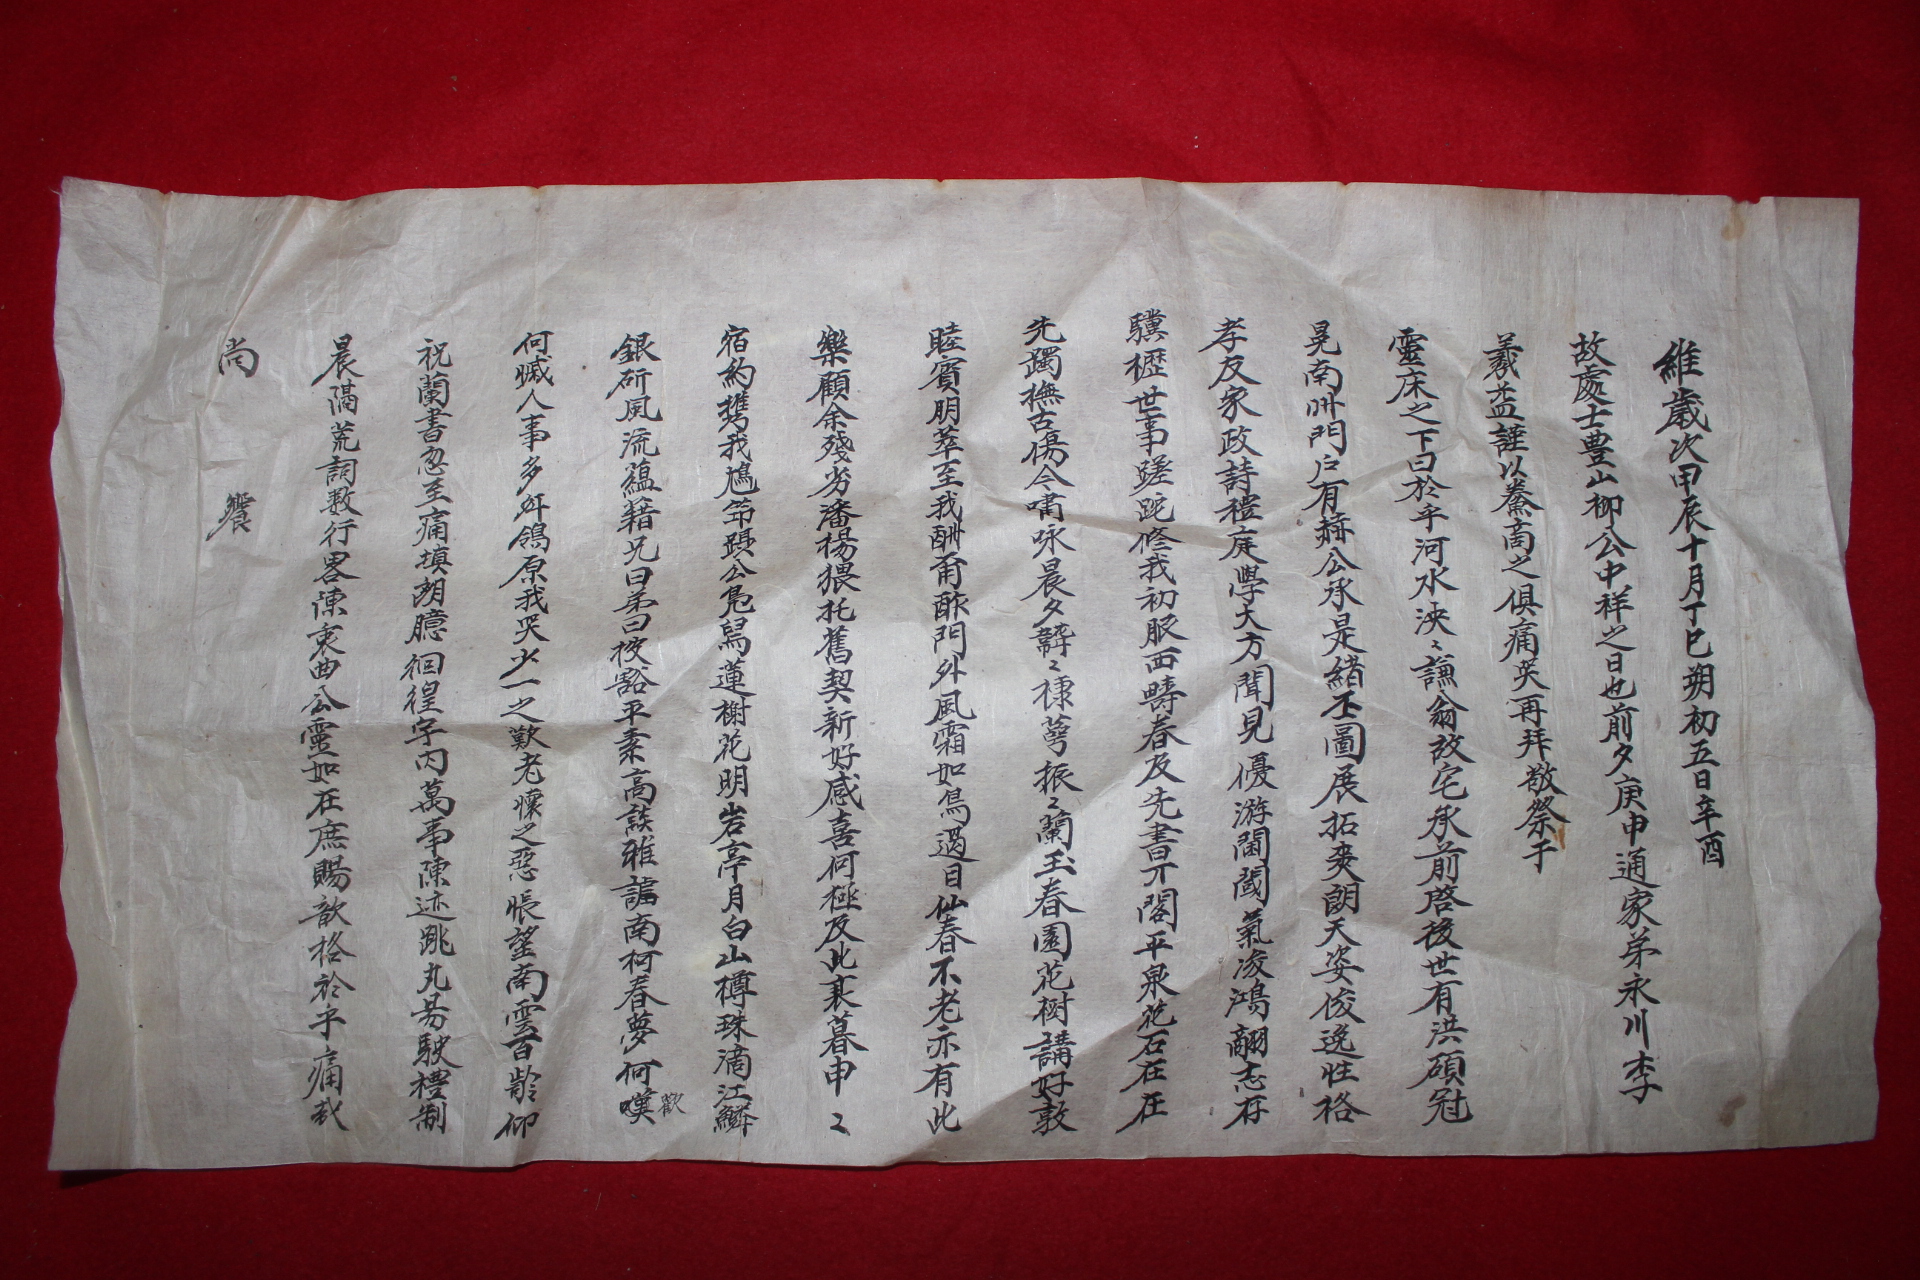 維歲次甲辰十月丁巳朔初五日辛酉
故處士豊山柳公中祥之日也前夕庚申通家弟永川李
羲益謹以鷄啇之俱痛哭再拜敬祭于
靈床之下曰於乎河水泱〻謙翁故宅承前啓後世有洪碩冠
冕南州門戶有赫公承是緖丕圖展拓爽朗天姿俊逸性格
孝友家政詩禮庭學大方聞見優游閫閾氣凌鴻翮志存
驥櫪世事蹉跎修我初服西疇春及先書開閣平泉花石在在
先躅撫古傷今嘯咏晨夕韡〻棣萼振〻蘭玉春園花樹講好敦
睦賓朋萃至我酬甫酢門外風霜如鳥過目仙春不老亦有此
樂顧余殘劣潘楊猥托舊契新好感喜何極及此衰暮申〻
宿約携我鳩笻躡公鳧舄蓮榭花明岩亭月白山樽珠滴江鱗
銀斫風流蘊籍兄曰弟曰披豁平素高談雅謔南柯春夢何嘆
歡
何慽人事多舛鴒原我哭少一之歎老懷之惡悵望南雲百齡仰
祝蘭書忽至痛塡胸臆徊徨宇內萬事陳迹跳丸易駛禮制
晨隔荒詞數行畧陳衷曲公靈如在庶賜歆格於乎痛哉
尚 饗